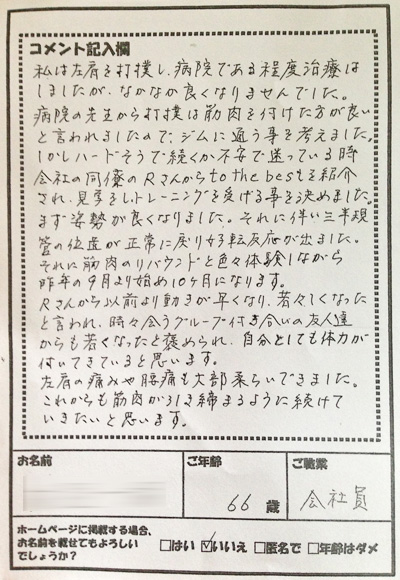 コメント記入欄
私は左肩を打撲し、病院である程度治療は
しましたが、なかなか良くなりませんでした。
病院の先生から打撲は筋肉を付けた方が良い
と言われましたので、ジムに通う事を考えました。
しかしハードそうで続くか不安で迷っている時
会社の同僚のRさんからto the bestを紹介
され、見学をしトレーニングを受ける事を決めました。
まず姿勢が良くなりました。それに伴い三半規
管の位置が正常に戻り好転反応が出ました。
それに筋肉のリバウンドと色々体験しながら
昨年の9月より始め10ヶ月になります。
Rさんから以前より動きが早くなり、若々しくなった
と言われ、時々会うグループ付き合いの友人達
からも若くなったと褒められ、自分としても体力が
付いてきていると思います。
左肩の痛みや腰痛も大部柔らいできました。
これからも筋肉が引き締まるように続けて
いきたいと思います。
お名前 ご年齢 ご職業
66歳 会社員
ホームページに掲載する場合、
お名前を載せてもよろしい
でしょうか?
□はい ☑いいえ □匿名で □年齢はダメ